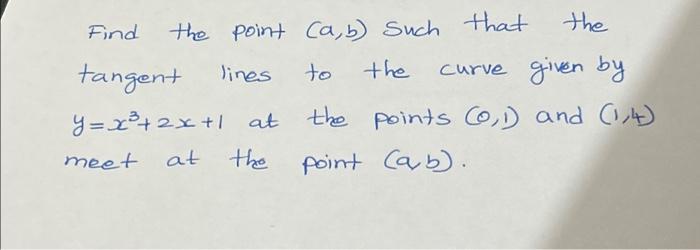 Find the point (a,b) such that the
tangent lines to the curve given by
y=x³+2x+1 at the points (0,1) and (1,4)
meet at the point (a,b).